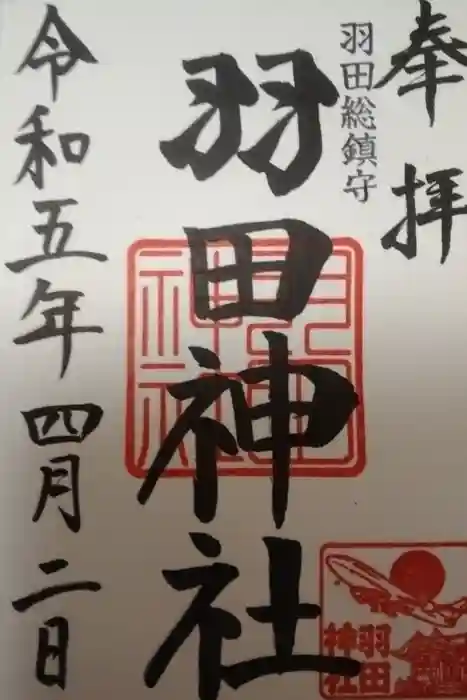 奉拝
羽田総鎮守
羽田神社
令和五年四月二日
羽田神社
羽田
神社